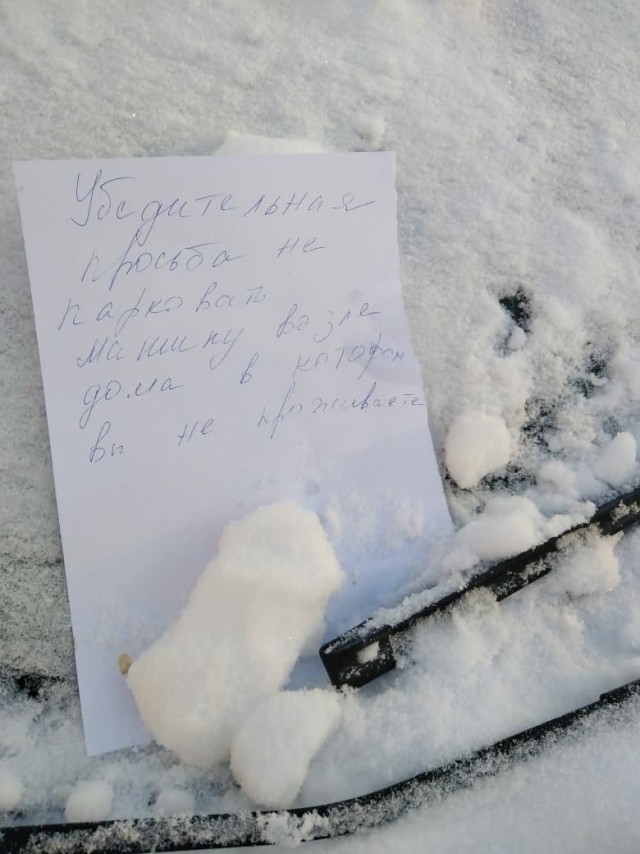 Убедительная
просьба не
парковать
машину возле
дома в котором
вы не проживаете